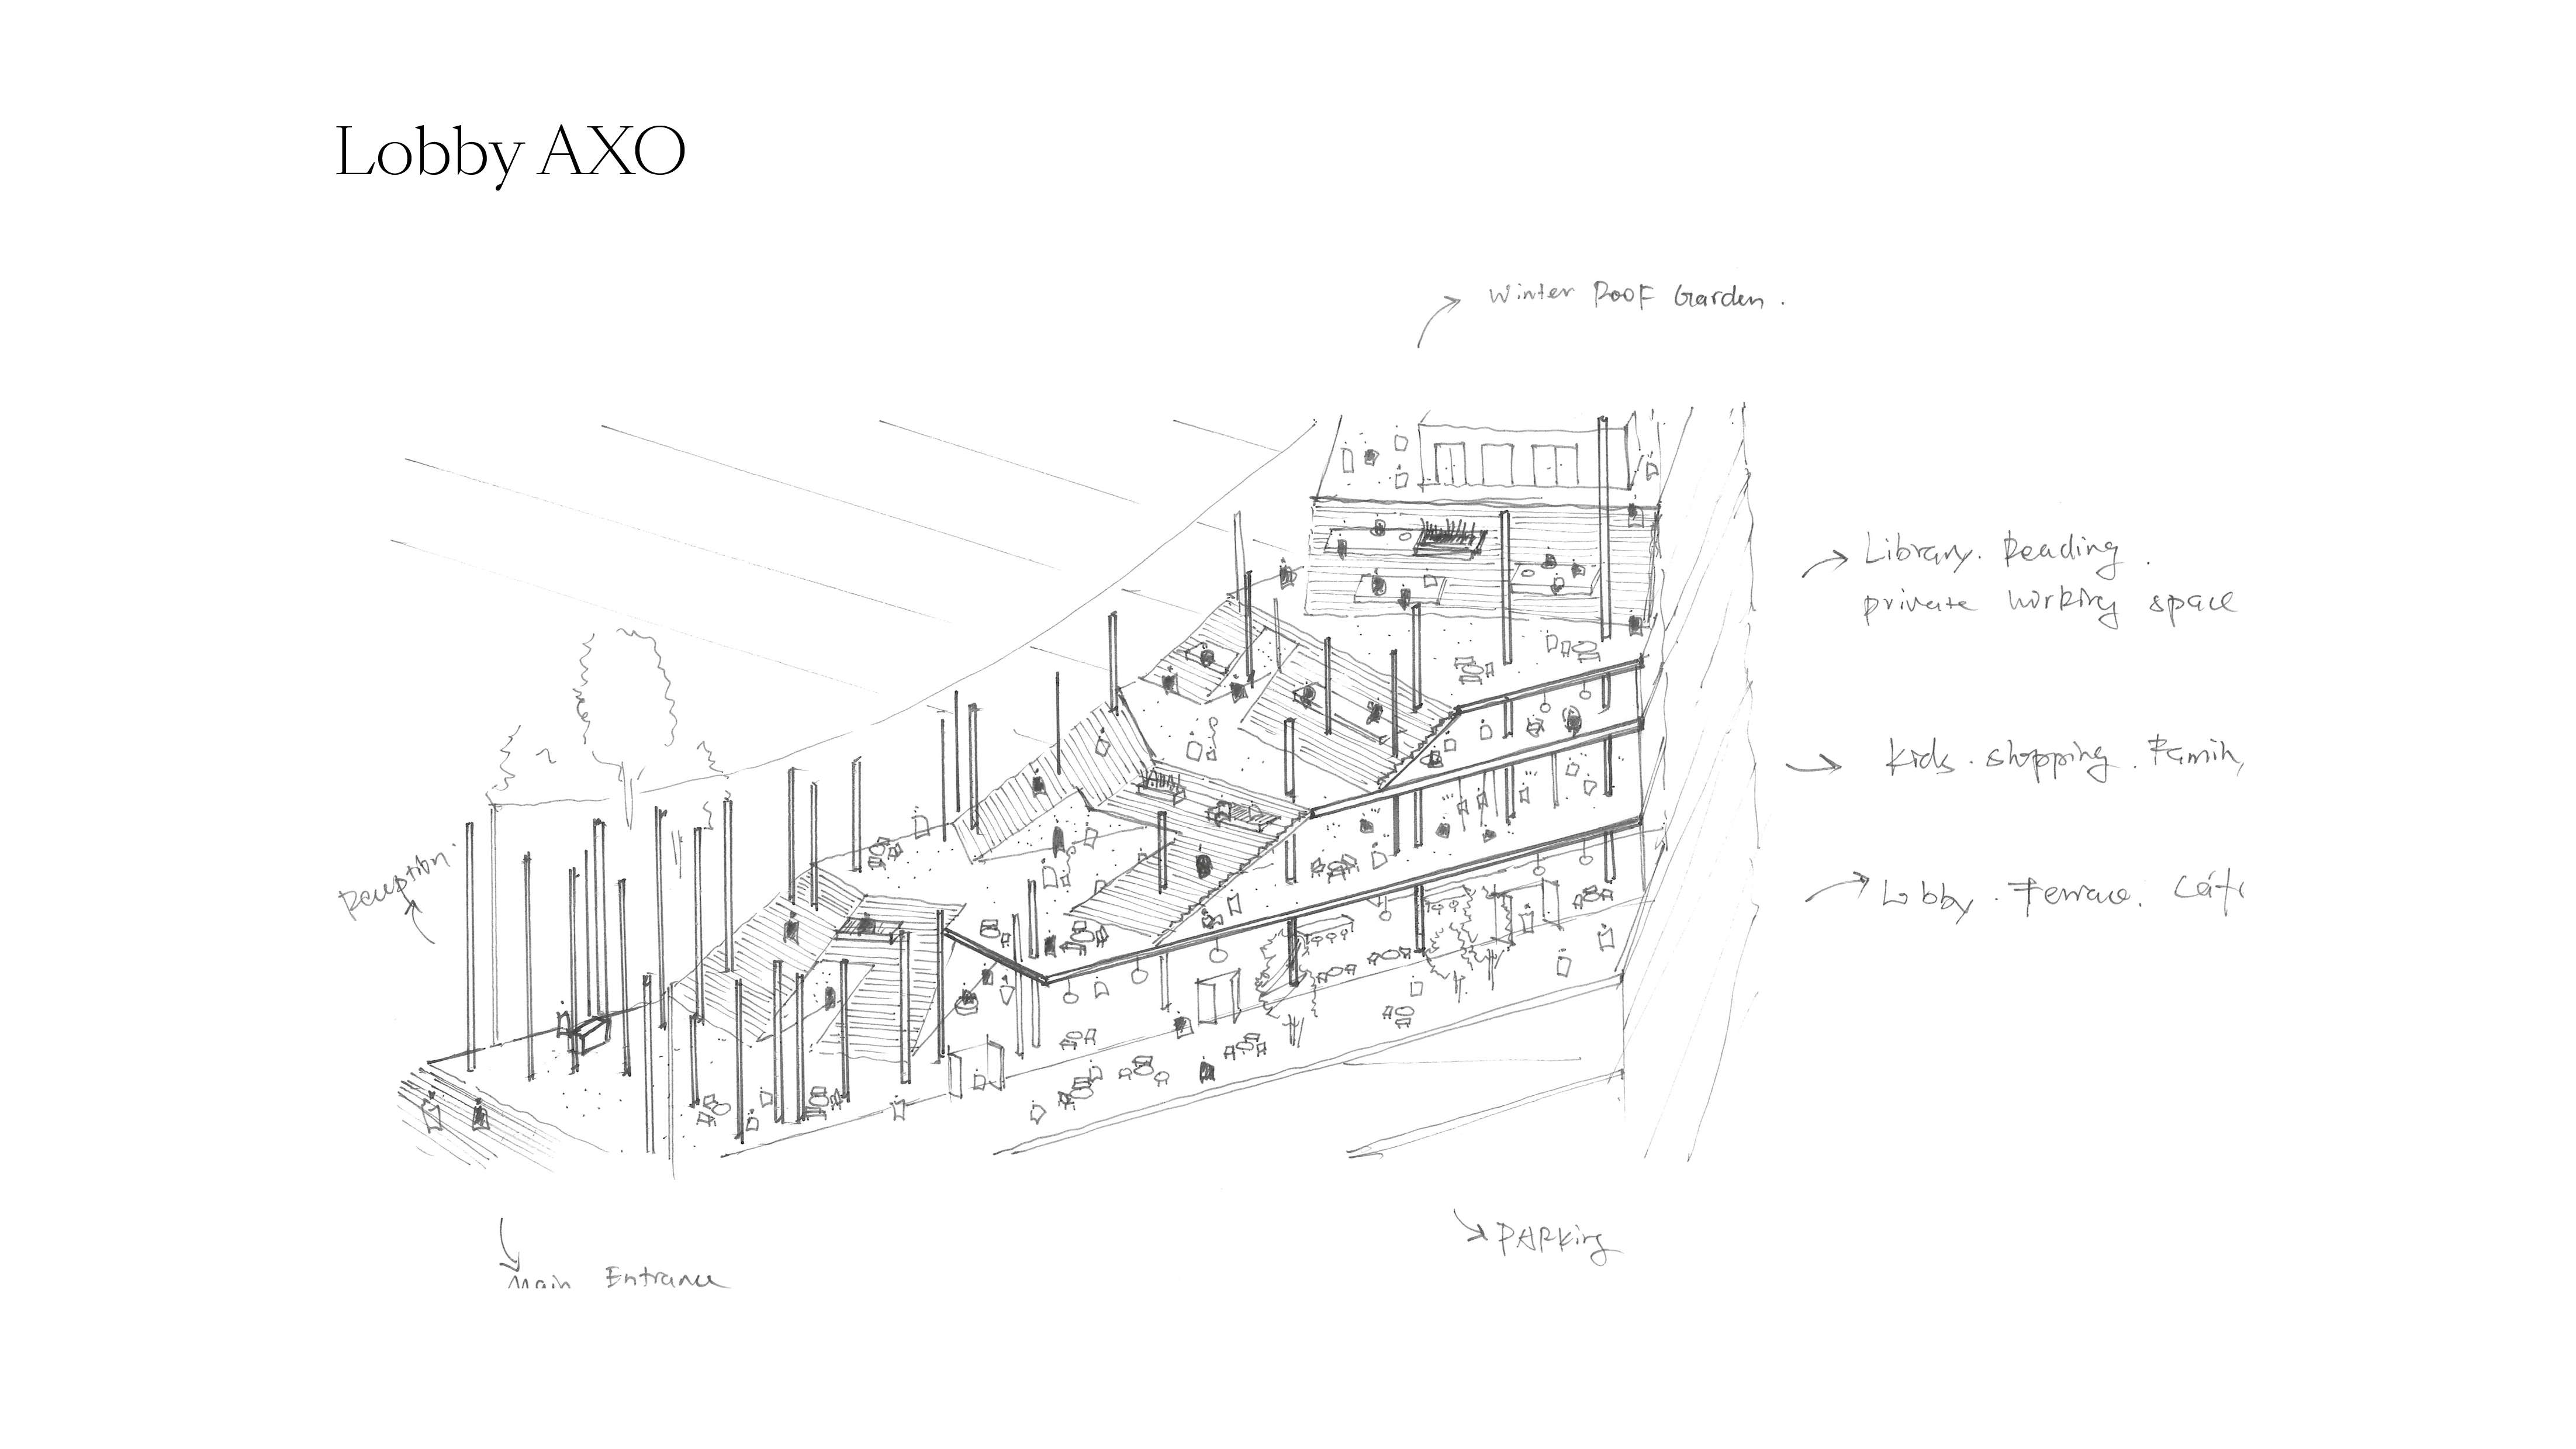 Lobby AXO
Winter Roof Garden.
Library. Reading.
private working space
Kids. shopping. Famih,
Reception.
Lobby. Terrace. Café
Parking
Main Entrance